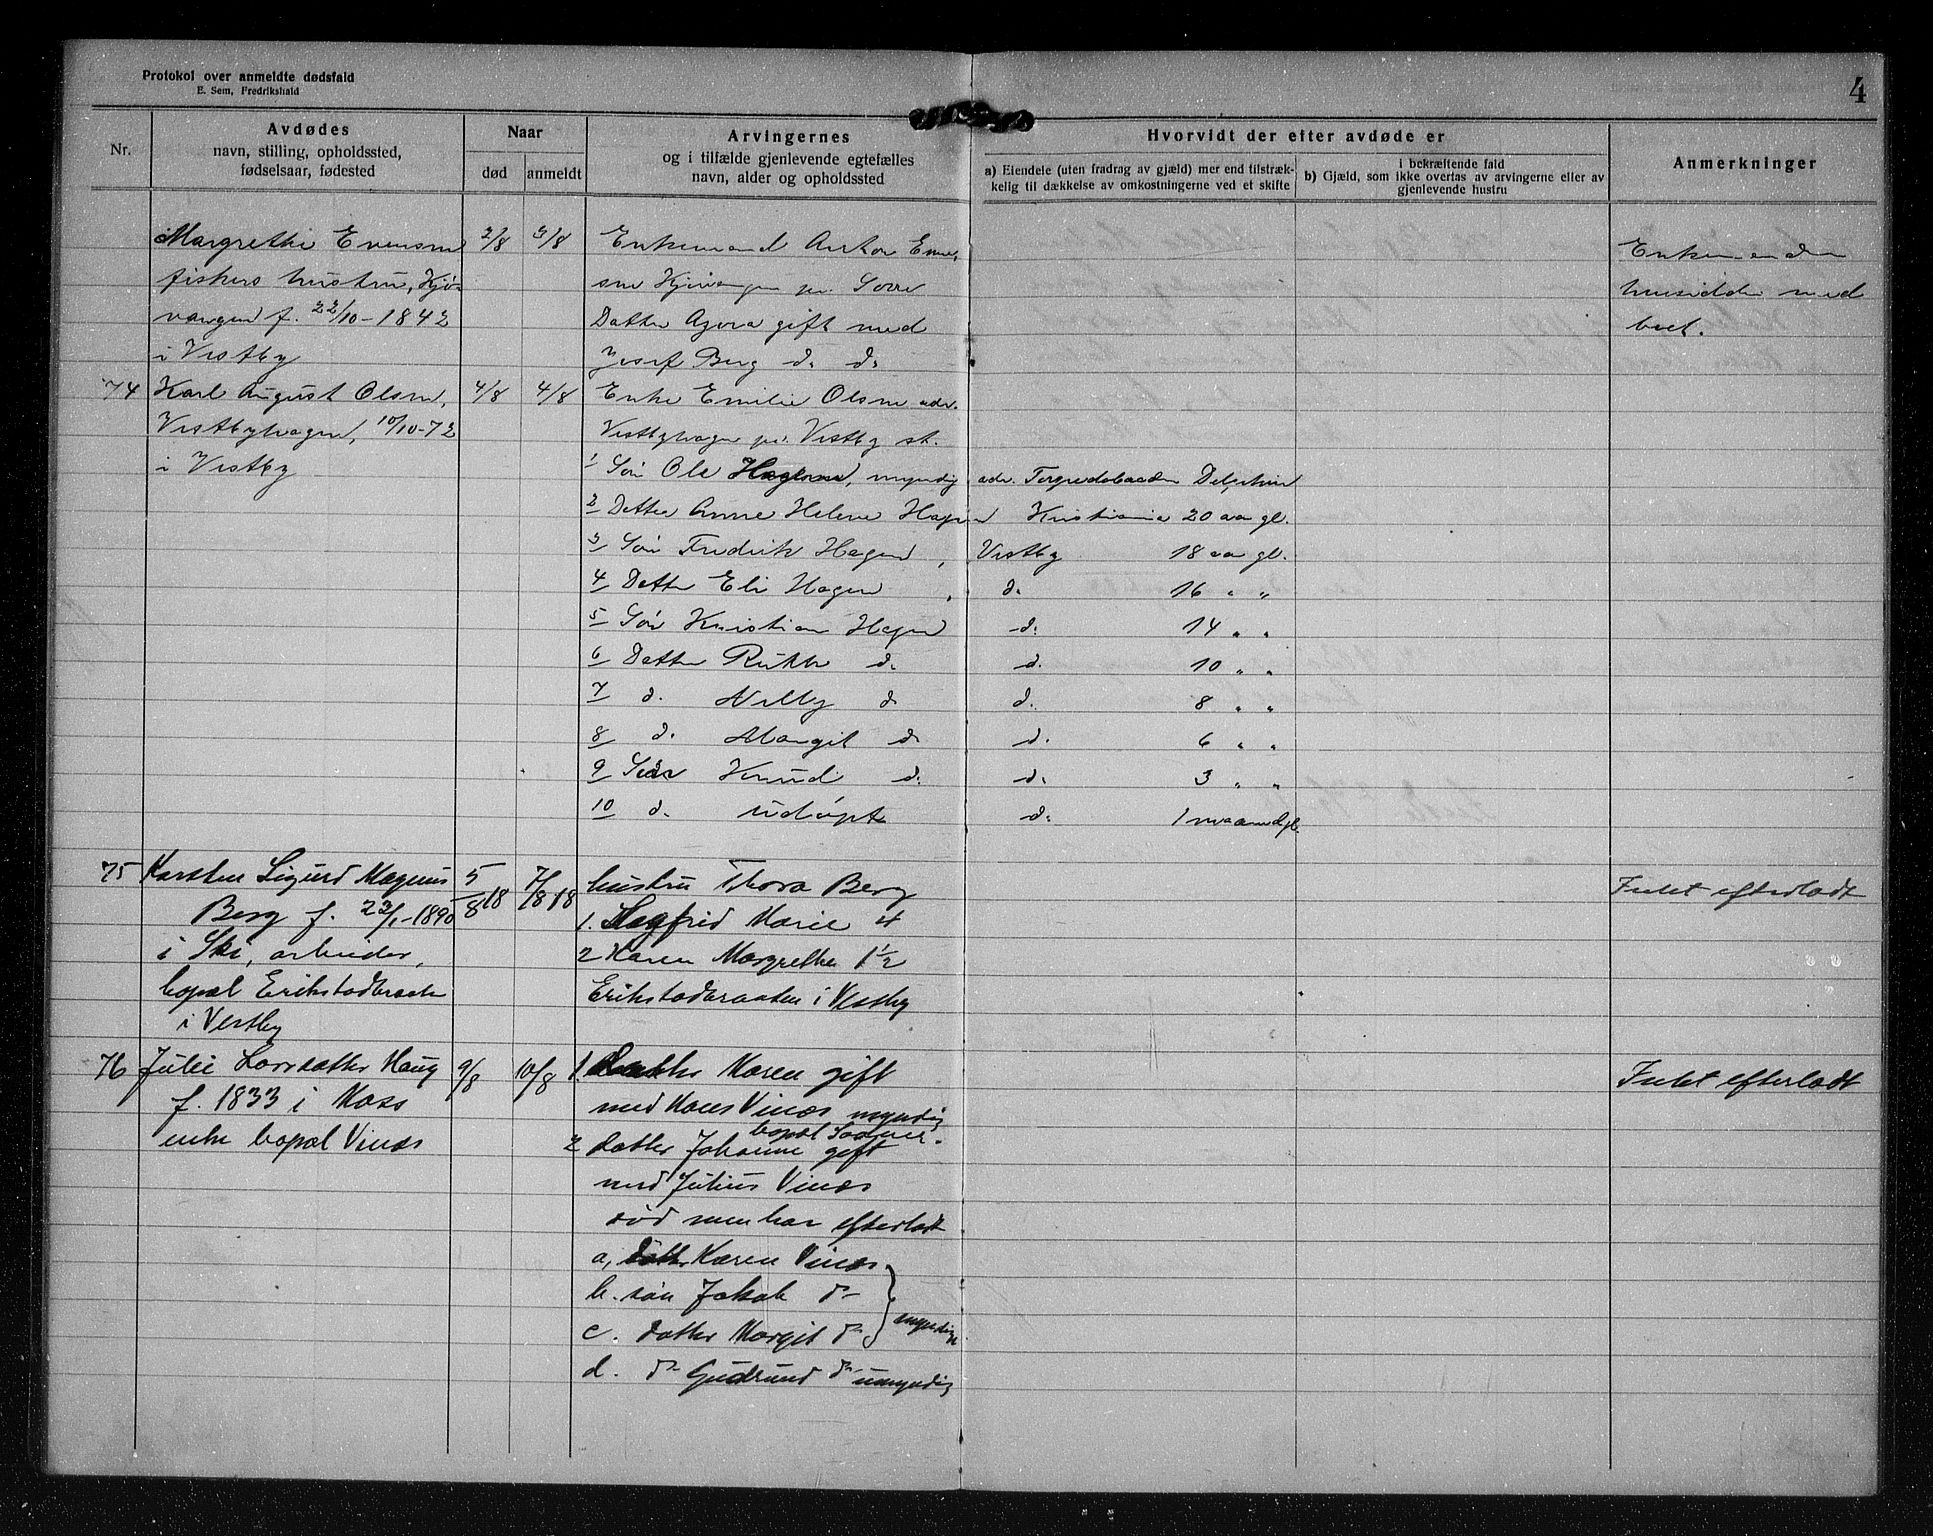 Protokol over anmeldte dødsfald
E. Sem, Fredrikshald
4
Nr.
Avdødes
navn, stilling, opholdssted,
fødselsaar, fødested
Naar
død
anmeldt
Arvingernes
og i tilfælde gjenlevende egtefælles
navn, alder og opholdssted
Hvorvidt der efter avdøde er
a) Eiendele (uten fradrag av gjæld) mer end tilstræk-
kelig til dækkelse av omkostningerne ved et skifte
i bekræftende fald
b) Gjæld, som ikke overtas av arvingerne eller av
gjenlevende hustru
Anmerkninger
Margrethe Evensen
fiskers hustru,
vangen f. 22/10-1842
i Vestby
2/8
3/8
Enkemand Anton Even
sen pr. Soon
Datter Agora gift med
Josef Berg d. d.
Enkemanden
hensidder med
boet.
74
Karl August Olsen,
Vestbyhagen, 10/10-72
i Vestby
4/8
4/8
Enke Emilie Olsen adr.
Vestbyhagen pr. Vestby st.
1 Søn Ole Hagen, myndig adr. Torpedobaaden Delphin
2 Datter Anne Helene Hagen Kristiania 20 aar gl.
3 Søn Fredrik Hagen, Vestby 18 aar gl.
4 Datter Eli Hagen, d. 16 " "
5 Søn Kristian Hagen d. 14 " "
6 Datter Ruth d. d. 10 " "
7 d. Nelly d d. 8 " "
8 d. Margit d. d. 6 " "
9 Søn Knud d. d. 3 " "
10 d. udøpt d. 1 maaned gl.
75
Karsten Sigurd Magnus
Berg f. 23/1-1890
i Ski, arbeider,
bopæl Erikstadbraaten
i Vestby
5/8 18
7/8 18
hustru Thora Berg
1. Sigfrid Marie 4
2 Karen Margrethe 1½
Erikstadbraaten i Vestby
Intet efterladt
76
Julie Larsdatter Haug
f. 1833 i Moss
enke bopæl Vinæs
9/8
10/8
1. datter Karen gift
med Hans Vinæs myndig
bopæl
2 datter Johanne gift
med Julius Vinæs
død men har efterladt
a, datter Karen Vinæs
b. søn Jakob do
c. datter Margit do
myndige
d. do Gudrund do umyndig
Intet efterladt